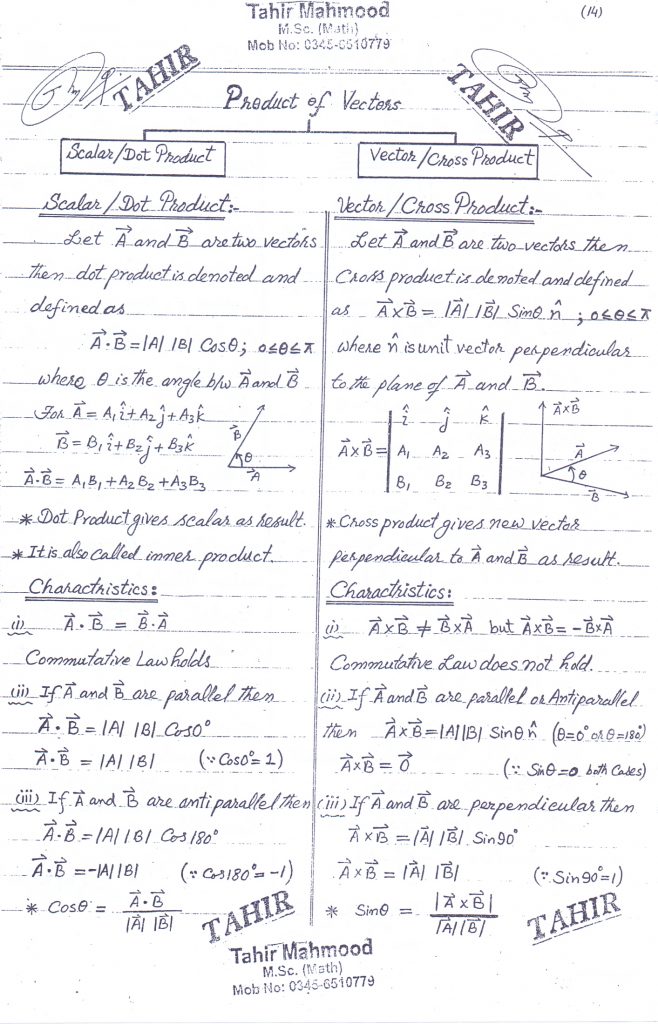 Tahir Mahmood
M.Sc. (Math)
Mob No: 0345-6510779
(14)
TAHIR
TAHIR
Product of Vectors
Scalar/Dot Product
Vector/Cross Product
Scalar/Dot Product:-
Let A⃗ and B⃗ are two vectors
then dot product is denoted and
defined as
A⃗·B⃗ = |A| |B| Cosθ; 0≤θ≤π
where θ is the angle b/w A⃗ and B⃗
For A⃗ = A₁î+A₂ĵ+A₃k̂
B⃗ = B₁î+B₂ĵ+B₃k̂
B⃗
θ
A⃗
A⃗·B⃗ = A₁B₁+A₂B₂+A₃B₃
* Dot Product gives scalar as result.
* It is also called inner product.
Charactristics:
(i) A⃗·B⃗ = B⃗·A⃗
Commutative Law holds
(ii) If A⃗ and B⃗ are parallel then
A⃗·B⃗ = |A| |B| Cos0°
A⃗·B⃗ = |A| |B| (∵ Cos0°=1)
(iii) If A⃗ and B⃗ are anti parallel then
A⃗·B⃗ = |A| |B| Cos180°
A⃗·B⃗ = -|A||B| (∵ Cos180°=-1)
* Cosθ = A⃗·B⃗ / |A⃗| |B⃗|
Vector/Cross Product:-
Let A⃗ and B⃗ are two vectors then
Cross product is denoted and defined
as A⃗×B⃗ = |A⃗| |B⃗| Sinθ n̂ ; 0≤θ≤π
where n̂ is unit vector perpendicular
to the plane of A⃗ and B⃗.
î ĵ k̂
A⃗×B⃗ = A₁ A₂ A₃
B₁ B₂ B₃
A⃗×B⃗
A⃗
θ
B⃗
* Cross product gives new vector
perpendicular to A⃗ and B⃗ as result.
Charactristics:
(i) A⃗×B⃗ ≠ B⃗×A⃗ but A⃗×B⃗ = -B⃗×A⃗
Commutative Law does not hold.
(ii) If A⃗ and B⃗ are parallel or Antiparallel
then A⃗×B⃗ = |A||B| Sinθ n̂ (θ=0° or θ=180°)
A⃗×B⃗ = 0⃗ (∵ Sinθ=0 both Cases)
(iii) If A⃗ and B⃗ are perpendicular then
A⃗×B⃗ = |A⃗| |B⃗| Sin90°
A⃗×B⃗ = |A⃗| |B⃗| (∵ Sin90°=1)
* Sinθ = |A⃗×B⃗| / |A⃗||B⃗|
TAHIR
TAHIR
Tahir Mahmood
M.Sc. (Math)
Mob No: 0345-6510779